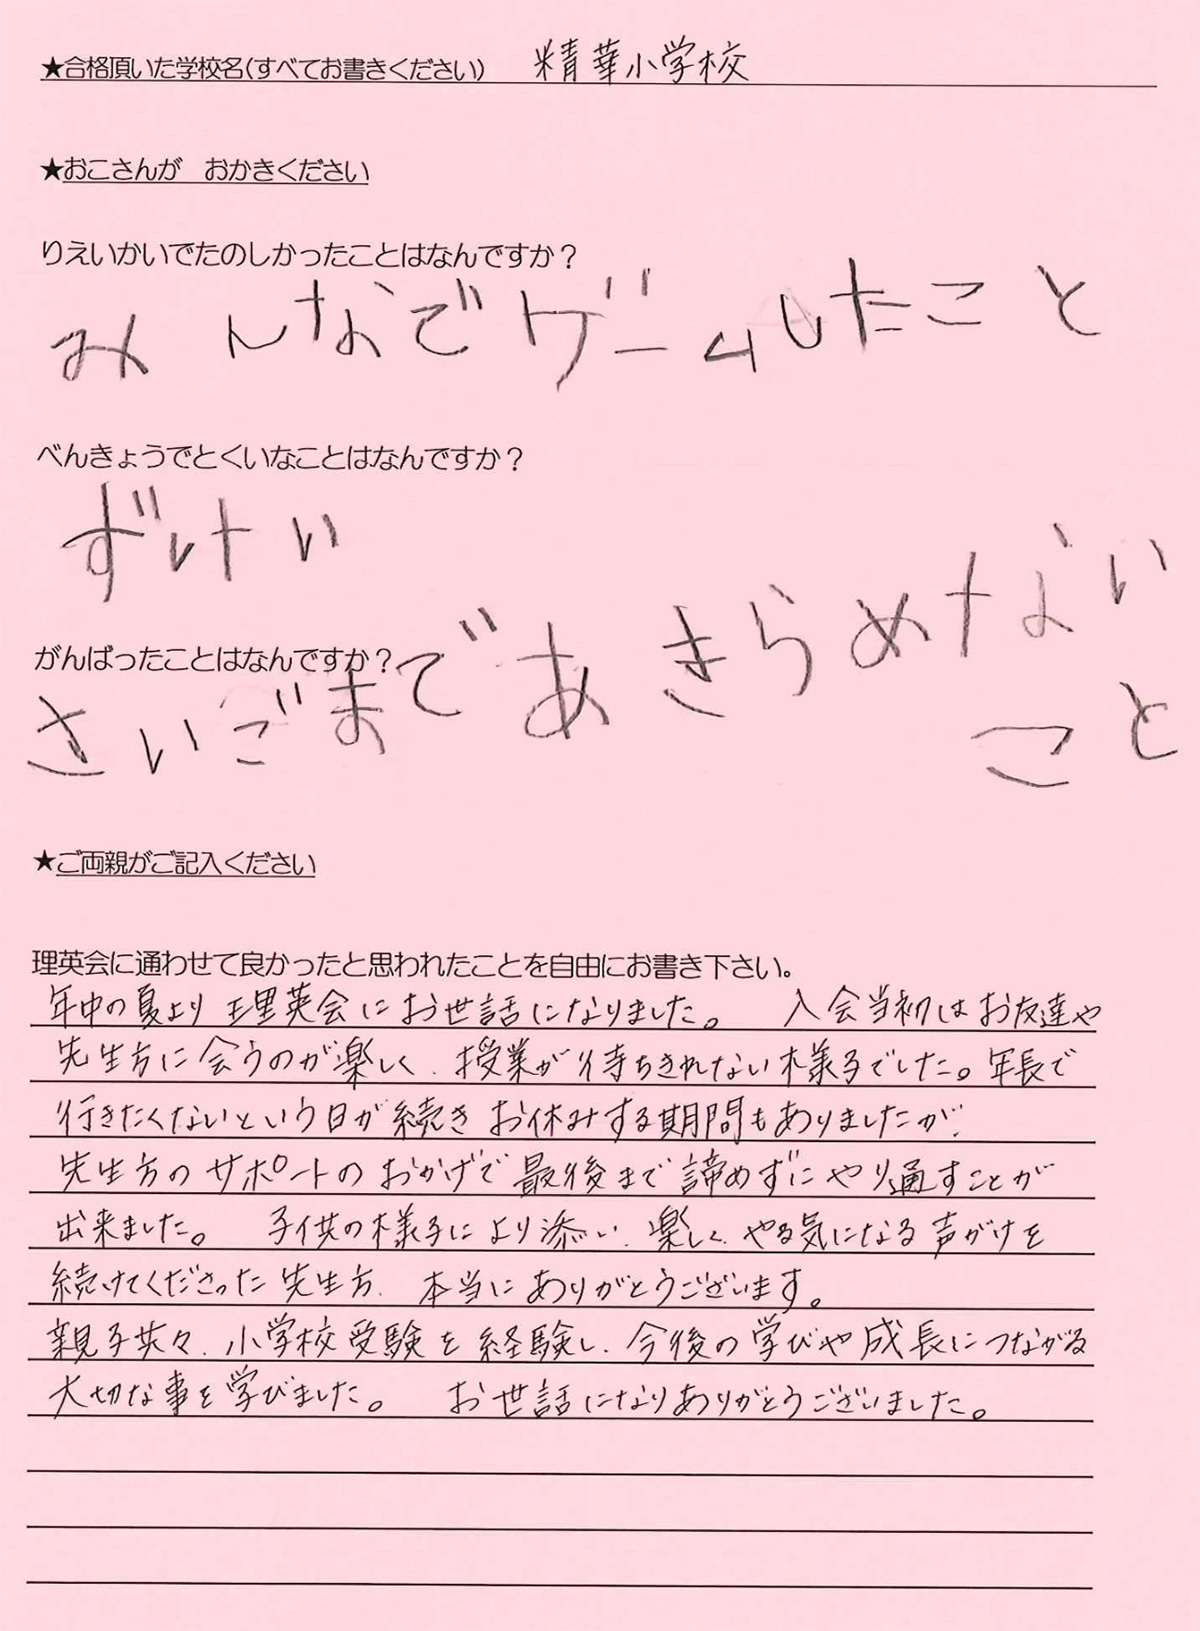 ★合格頂いた学校名(すべてお書きください) 精華小学校
★おこさんが おかきください
りえいかいでたのしかったことはなんですか？
みんなでゲームしたこと
べんきょうでとくいなことはなんですか？
ずけい
がんばったことはなんですか？
さいごまであきらめない
こと
★ご両親がご記入ください
理英会に通わせて良かったと思われたことを自由にお書き下さい。
年中の夏より理英会にお世話になりました。 入会当初はお友達や
先生方に会うのが楽しく、授業が待ちきれない様子でした。年長で
行きたくないという日が続きお休みする期間もありましたが、
先生方のサポートのおかげで最後まで諦めずにやり通すことが
出来ました。 子供の様子により添い、楽しく、やる気になる声がけを
続けてくださった先生方、本当にありがとうございます。
親子共々、小学校受験を経験し、今後の学びや成長につながる
大切な事を学びました。 お世話になりありがとうございました。